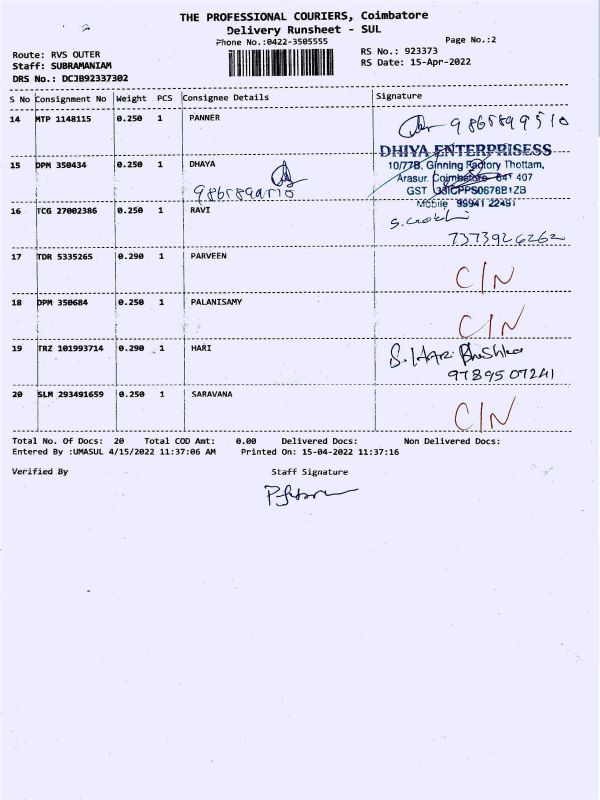 THE PROFESSIONAL COURIERS, Coimbatore
Delivery Runsheet - SUL
Phone No.:0422-3505555
Page No.:2
Route: RVS OUTER
RS No.: 923373
Staff: SUBRAMANIAM
RS Date: 15-Apr-2022
DRS No.: DCJB92337302
S No Consignment No Weight PCS Consignee Details Signature
14 MTP 1148115 0.250 1 PANNER 9865899510
DHIYA ENTERPRISESS
10/77B, Ginning Factory Thottam,
15 DPM 350434 0.250 1 DHAYA
Arasur, Coimbatore 641 407
GST
Mobile 99941 22451
16 TCG 27002386 0.250 1 RAVI
7373926262
17 TDR 5335265 0.290 1 PARVEEN C/N
18 DPM 350684 0.250 1 PALANISAMY C/N
19 TRZ 101993714 0.290 1 HARI S. Hari
9789507241
20 SLM 293491659 0.250 1 SARAVANA C/N
Total No. Of Docs: 20 Total COD Amt: 0.00 Delivered Docs: Non Delivered Docs:
Entered By :UMASUL 4/15/2022 11:37:06 AM Printed On: 15-04-2022 11:37:16
Verified By Staff Signature